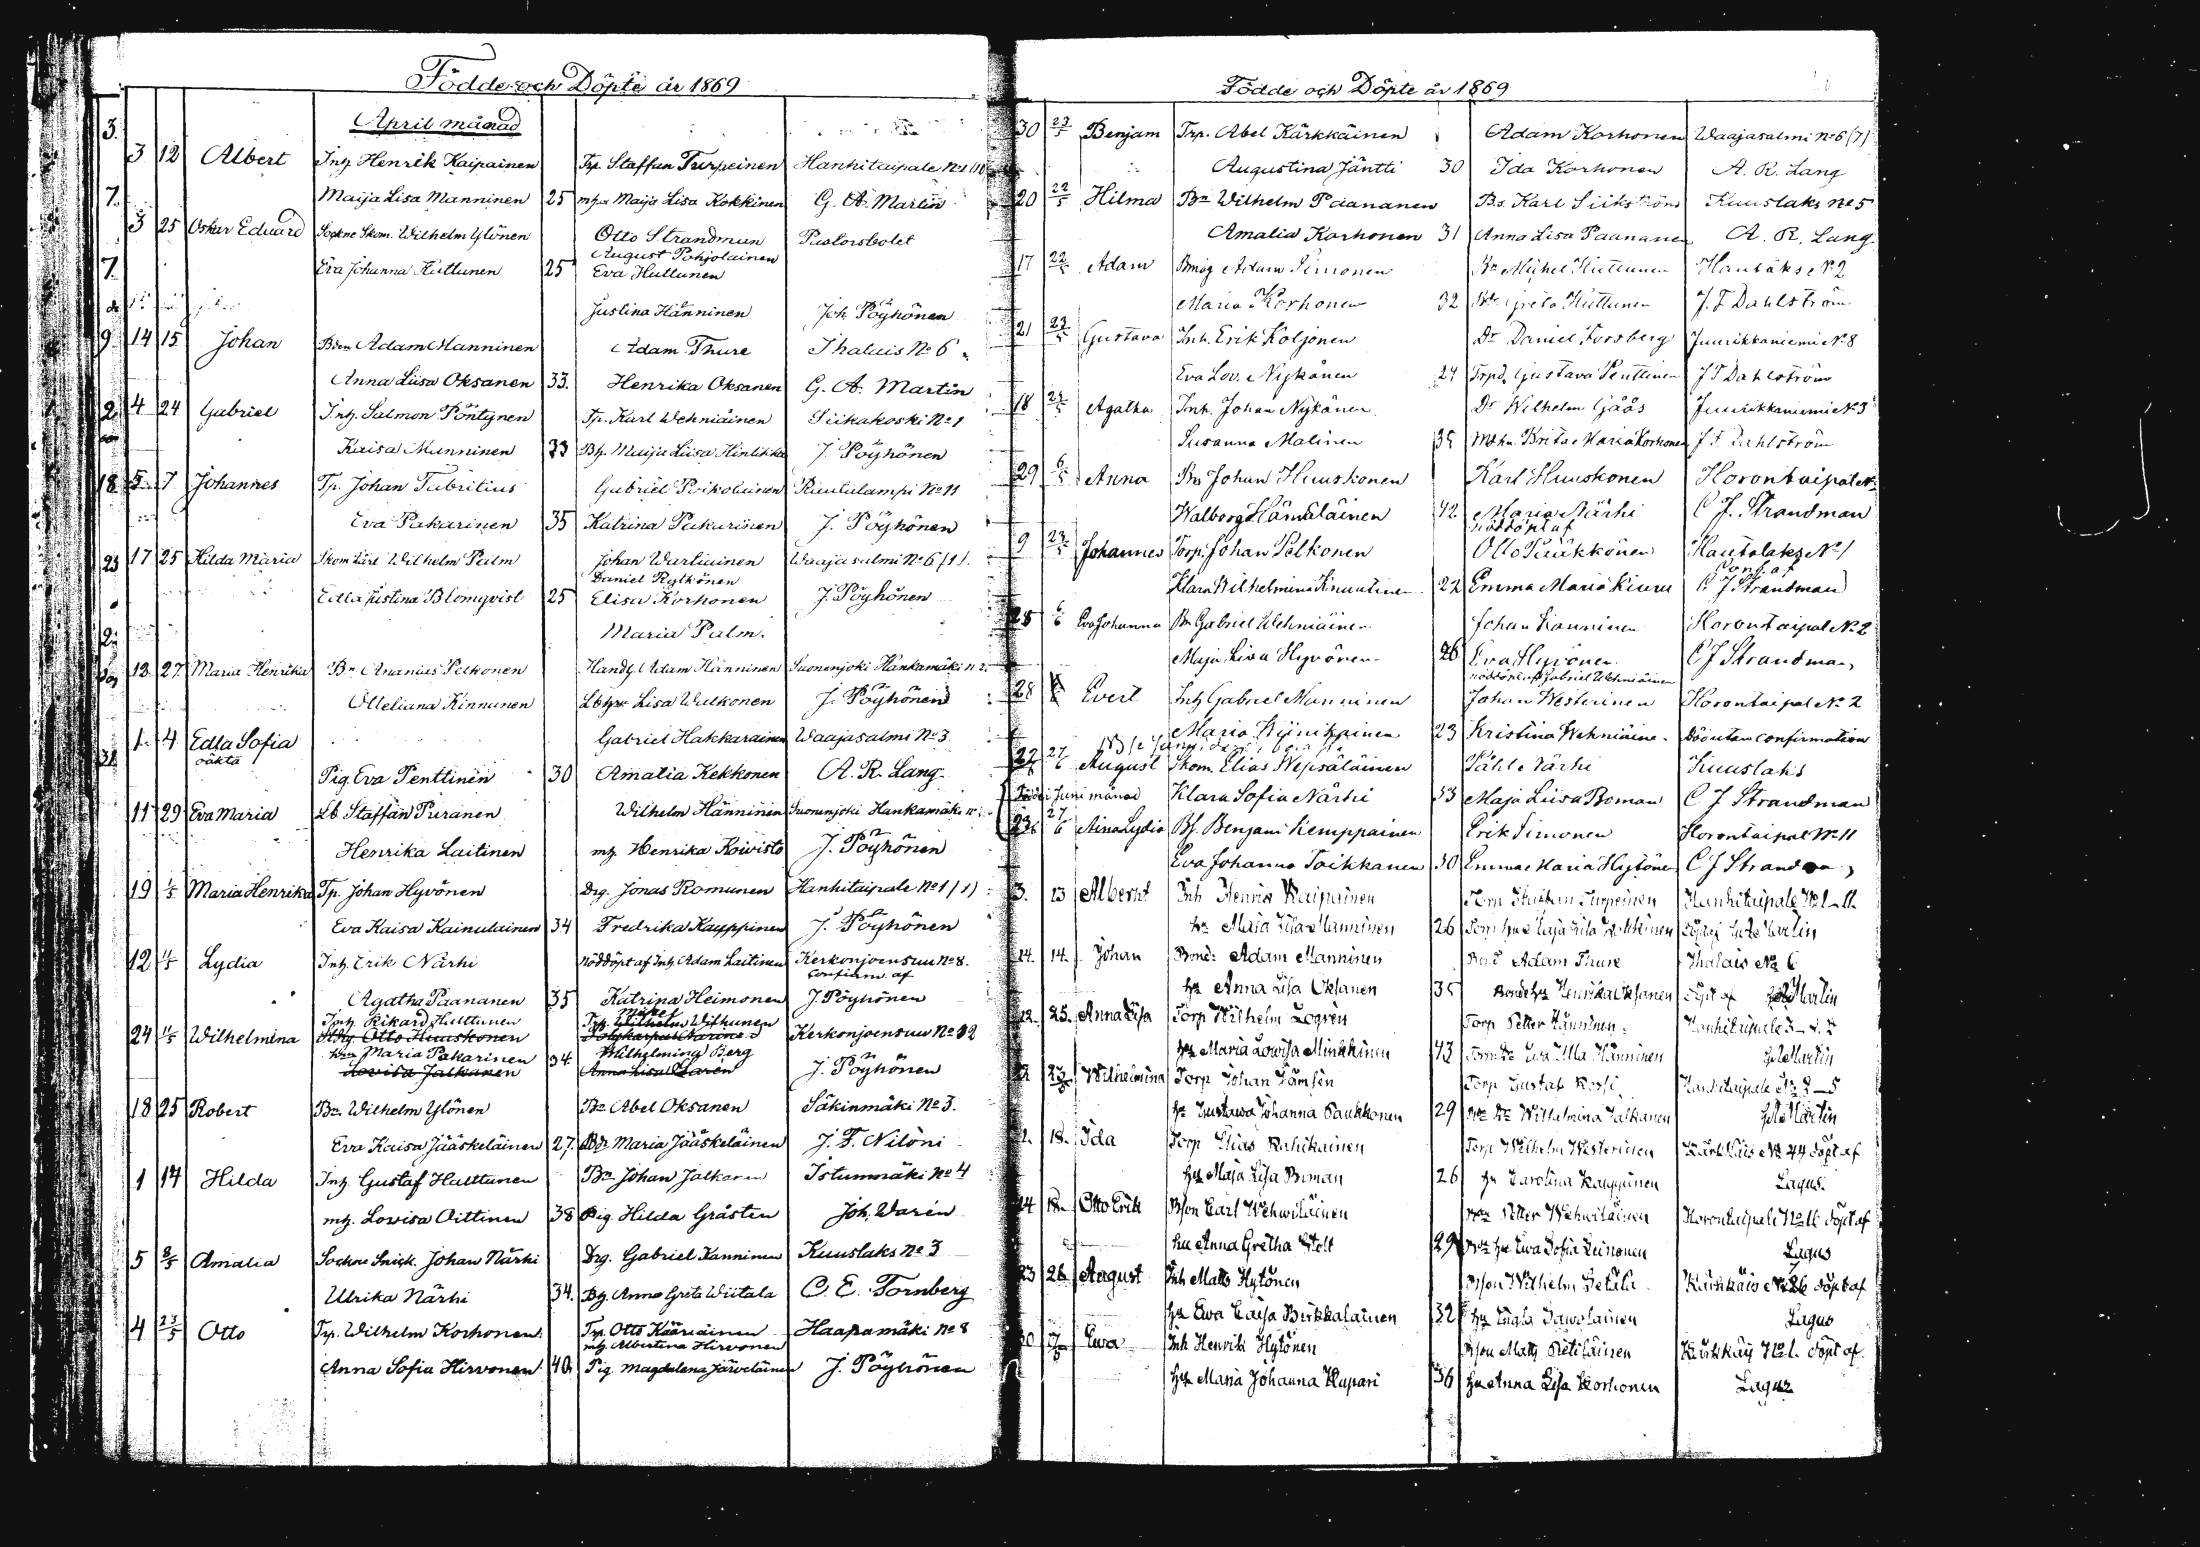 Födde och Döpte år 1869
April månad
3.
3 12 Albert Inh. Henrik Kaipainen Trp. Staffan Turpeinen Hanhitaipale No 1
Maija Lisa Manninen 25 Maija Lisa Kokkinen G. A. Martin
7.
3 25 Oskar Eduard Sockne Skom. Wilhelm Ylönen Otto Strandman Pastorsbolet
August Pohjolainen
7. Eva Johanna Huttunen 25 Eva Huttunen
Justina Hänninen Joh Pöyhönen
9 14 15 Johan Adam Manninen Adam Thure Ihalais No 6
Anna Liisa Oksanen 33. Henrika Oksanen G. A. Martin
2. 4 24 Gabriel Inh. Salmon Pöntynen Tp. Karl Wehniäinen Siikakoski No 1
Kaisa Manninen 33 Maija Liisa Hinlikka J. Pöyhönen
18 5 7 Johannes Tp. Johan Tubritius Gabriel Poikolainen Ruutulampi No 11
Eva Pakarinen 35 Katrina Pakarinen J. Pöyhönen
23 17 25 Hilda Maria Skom lärl Wilhelm Palm Johan Wartiainen Waajasalmi No 6 (1).
Daniel Rytkönen
Edla Justina Blomqvist 25 Elisa Korhonen J. Pöyhönen
2. Maria Palm.
12 27 Maria Henrika Bn Ananias Pelkonen Handl. Adam Hänninen Suonenjoki Hankamäki n 2.
Otteliana Kinnunen Lisa Wulkonen J. Pöyhönen
1. 4 Edla Sofia Gabriel Hakkarainen Waajasalmi No 3
31 oäkta
Pig. Eva Penttinen 30 Amalia Kekkonen A. R. Lang
11 29 Eva Maria Lb. Staffan Puranen Wilhelm Hänninen Suonenjoki Hankamäki
Henrika Laitinen Henrika Koivisto J. Pöyhönen
19 1/5 Maria Henrika Tp. Johan Hyvönen Drg. Jonas Romunen Hanhitaipale No 1 (1)
Eva Kaisa Kainulainen 34 Fredrika Kauppinen J. Pöyhönen
12 Lydia Inh. Erik Närhi nöddöpt af Inh. Adam Laitinen Kerkonjoensuu No 8.
Confirm. af
Agatha Paananen 35 Katrina Heimonen J. Pöyhönen
Inh. Rikard Huttunen Trp. Wilhelm Wilhunen
24 Wilhelmina Otto Huuskonen Kerkonjoensuu No 12
Maria Pakarinen 34 Wilhelmina Berg
Lovisa Jalkanen Anna Lisa J. Pöyhönen
18 25 Robert Bn. Wilhelm Ylönen Bn Abel Oksanen Säkinmäki No 3.
Eva Kaisa Jääskeläinen 27. Maria Jääskeläinen J. F. Niloni
1 14 Hilda Inh. Gustaf Huttunen Bn Johan Jalkanen Istunmäki No 4
Lovisa Oittinen 38 Pig. Hilda Gråsten Joh. Warén
5 8/5 Amalia Sockne Snick. Johan Närhi Drg. Gabriel Kanninen Kuuslaks No 3
Ulrika Närhi 34. Anna Greta Wiitala C. E. Tornberg
4 23/5 Otto Trp. Wilhelm Korhonen Trp. Otto Kääriäinen Haapamäki No 8
Albertina Hirvonen
Anna Sofia Hirvonen 40. Pig. Magdalena Järveläinen J. Pöyhönen
Födde och Döpte år 1869
30 23/5 Benjam Trp. Abel Kärkkäinen Adam Korhonen Waajasalmi No 6 (7)
Augustina Jäntti 30 Ida Korhonen A. R. Lang
20 22/5 Hilma Bn Wilhelm Paananen Bs. Karl Siikström Kuuslaks No 5
Amalia Korhonen 31 Anna Lisa Paananen A. R. Lang.
17 22/5 Adam Adam Simonen Bn Mikel Huttunen Hautaks No 2
Maria Korhonen 32 Greta Huttunen J. F. Dahlström
21 23/5 Gustava Inh. Erik Koljonen Dr Daniel Forsberg Juurikkaniemi No 8
Eva Lov. Nykänen 24 Gustava Penttinen J F Dahlström
18 Agatha Inh. Johan Nykänen Dr Wilhelm Gåås Juurikkaniemi No 3
Susanna Malinen 35 Brita Maria Korhonen J. F. Dahlström
29 6/5 Anna Bn Johan Huuskonen Karl Huuskonen Horontaipal No
Walborg Hämäläinen 42 Maria Närhi C J. Strandman
nöddöpt af
9 23/5 Johannes Torp. Johan Pelkonen Otto Pääkkönen Hautolaks No 1
Conf. af
Klara Wilhelmina Knuutinen 22 Emma Maria Kiuru C J Strandman
28 Eva Johanna Bn Gabriel Wehniäinen Johan Kanninen Horontaipal No 2
Maja Lisa Hyvönen 26 Eva Hyvönen C J Strandman
nöddöpt af Gabriel Wehniäinen
28 Evert Inh Gabriel Manninen Johan Westerinen Horontaipal No 2
Maria Kiinikainen 23 Kristina Wehniäinen Död utan confirmation
27/6 August Skom. Elias Wepsäläinen Påhl Närhi Kuuslaks
Juni månad Klara Sofia Närhi 33 Maja Liisa Boman C J Strandman
23 27/6 Aina Lydia Bs. Benjam Kemppainen Erik Simonen Horontaipal No 11
Eva Johanna Toikkanen 30 Emma Maria Hytönen C J Strandman
3. 13 Albernt Inh Henrik Kaipainen Torp Staffan Turpeinen Hanhitaipale No 1
Maja Lisa Manninen 26 Maja Lisa Kokkinen döpt af Martin
14. 14. Johan Bond: Adam Manninen Bond Adam Thure Ihalais No 6
Anna Lisa Oksanen 35 Henrika Oksanen döpt af Martin
12. 25. Anna Lisa Torp Wilhelm Logren Torp Petter Hänninen Hanhitaipale
Maria Lowisa Minkkinen 43 Ewa Ulla Hänninen Martin
23/5 Wilhelmina Torp Johan Jämsén Torp Gustaf Rossi Hanhitaipale
Gustawa Johanna Paukkonen 29 Wilhelmina Jalkanen Martin
18 Ida Torp Elias Rahikainen Torp Wilhelm Westerinen Kärkkäis No 44 döpt af
Maja Lisa Boman 26 Karolina Kauppinen Lagus
14 18 Otto Erik Bson Carl Wehwiläinen Petter Wehwiläinen Horontaipale No 16 döpt af
Anna Gretha Stolt 29 Ewa Sofia Leinonen Lagus
23 26 August Inh Matts Hytönen Bson Wilhelm Setälä Kärkkäis döpt af
Ewa Caisa Birkkalainen 32 Ingla Sawolainen Lagus
30 Ewa Inh Henrik Hytönen Bson Matts Pietiläinen Kärkkäis No 1. döpt af
Maria Johanna Kupari 36 Anna Lisa Korhonen Lagus